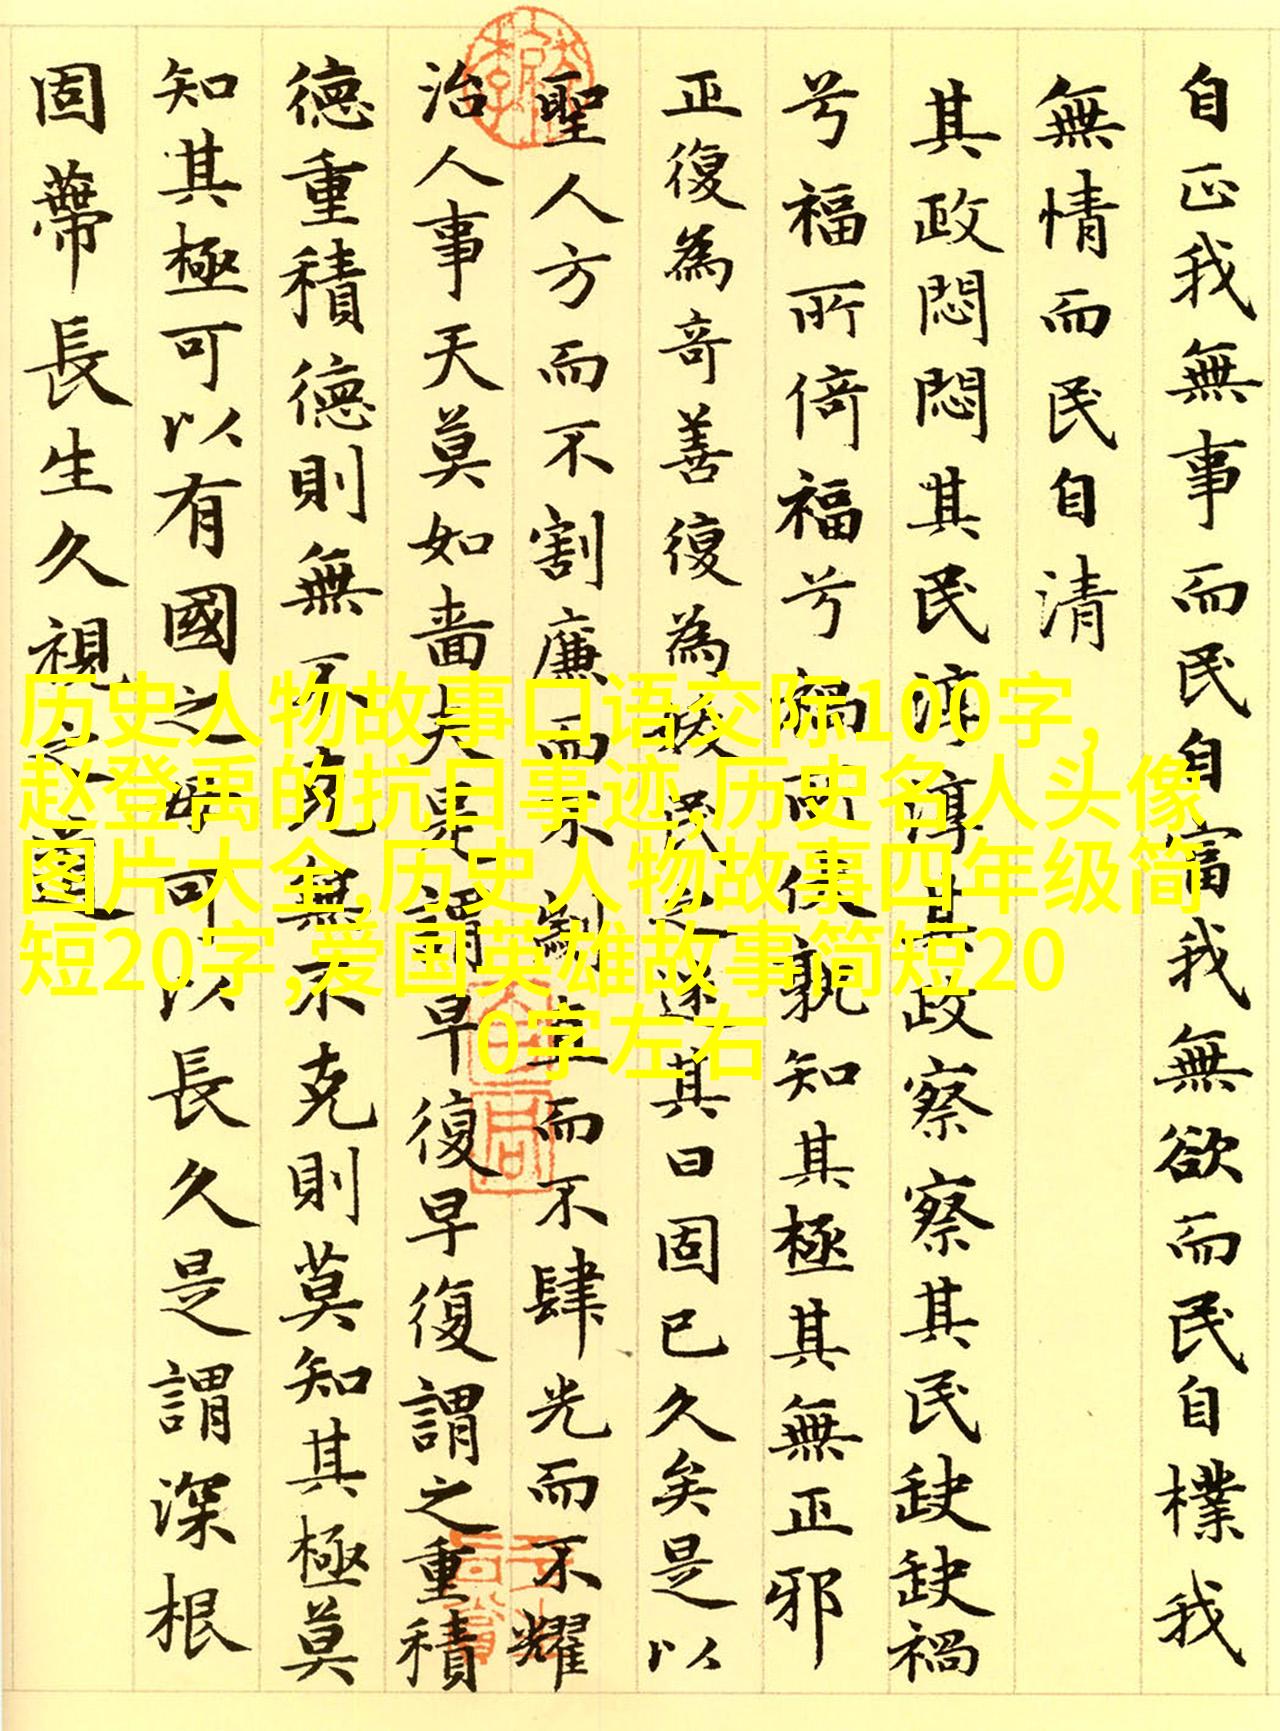 自正我無事而民自富我無欲而民自樸我
無情而民自清
其政悶悶其民淳淳其政察察其民缺缺禍
兮福所倚福兮禍所伏孰知其極其無正邪
正復為奇善復為民之迷其日固已久矣是以
聖人方而不割廉而不劌直而不肆光而不耀
治人事天莫如嗇夫是謂早復早復謂之重積
德重積德則無不克無不克則莫知其極莫
知其極可以有國之母可以長久是謂深根
固蔕長生久視之道
历史人物故事口语交际100字,
赵登禹的抗日事迹,历史名人头像
图片大全,历史人物故事四年级简
短20字,爱国英雄故事简短20
0字左右